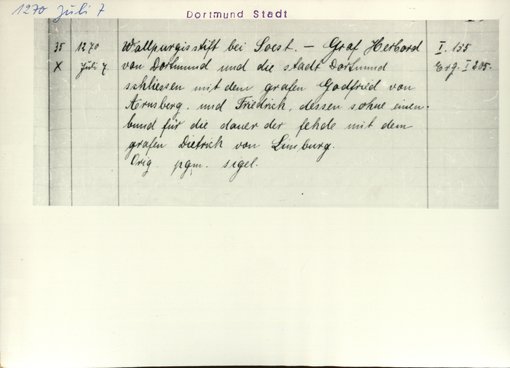 1270 Juli 7
Dortmund Stadt
35 1270 Wallpurgisstift bei Soest. – Graf Herbord I. 155
X Juli 7. von Dortmund und die stadt Dortmund Erg. I 205.
schliessen mit dem grafen Godfried von
Arnsberg und Friedrich, dessen sohne einen
bund für die dauer der fehde mit dem
grafen Dietrich von Limburg.
Orig. pgm. sigel.